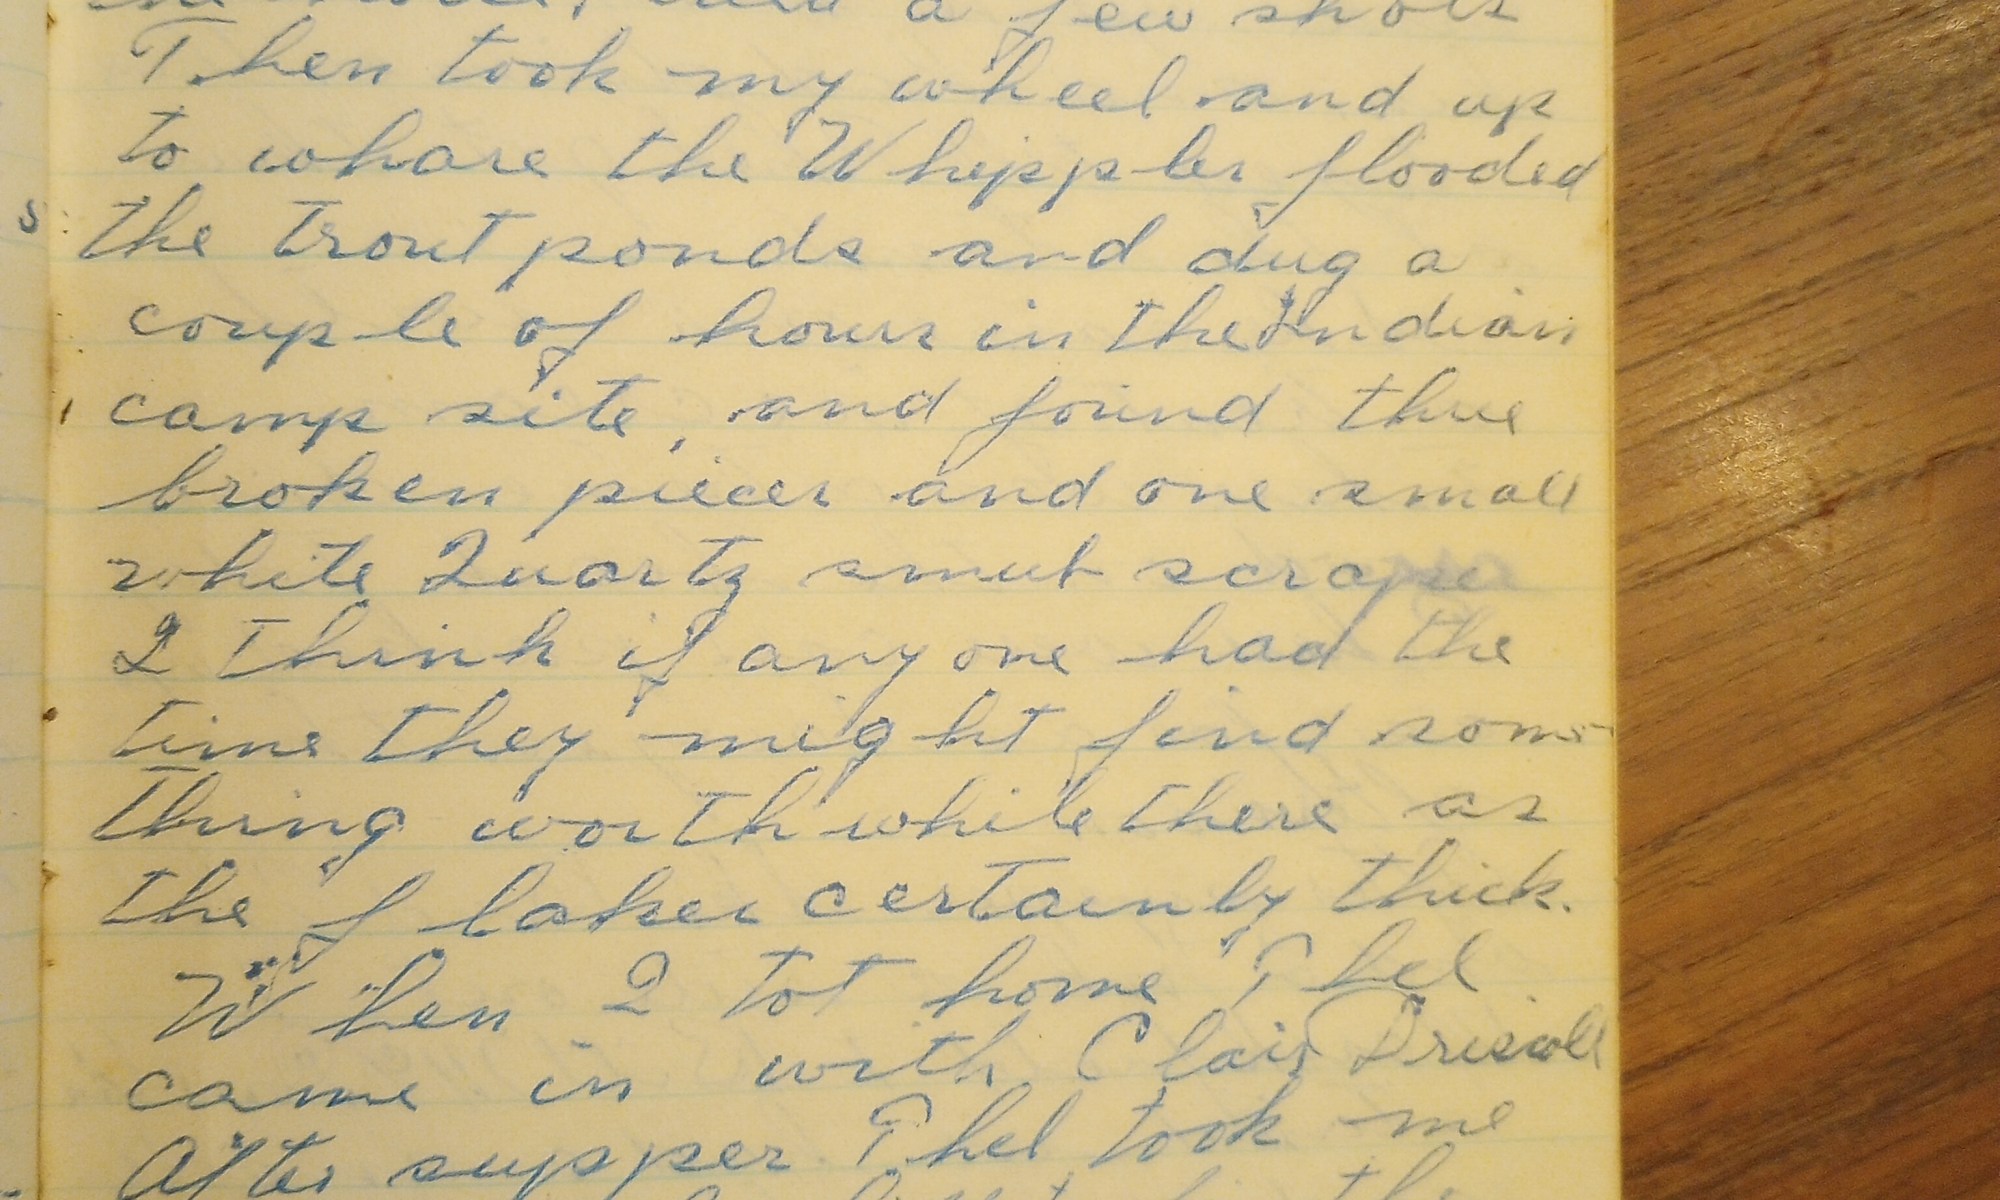 a few shots
Then took my wheel and up
to whare the Whipples flooded
the trout ponds and dug a
couple of hours in the Indian
camp site, and found three
broken pieces and one small
white Quartz scrape
I think if anyone had the
time they might find some
thing worth while there as
the flakes certainly thick.
When I tot home Thel
came in with Clair Driscoll
After supper Thel took me